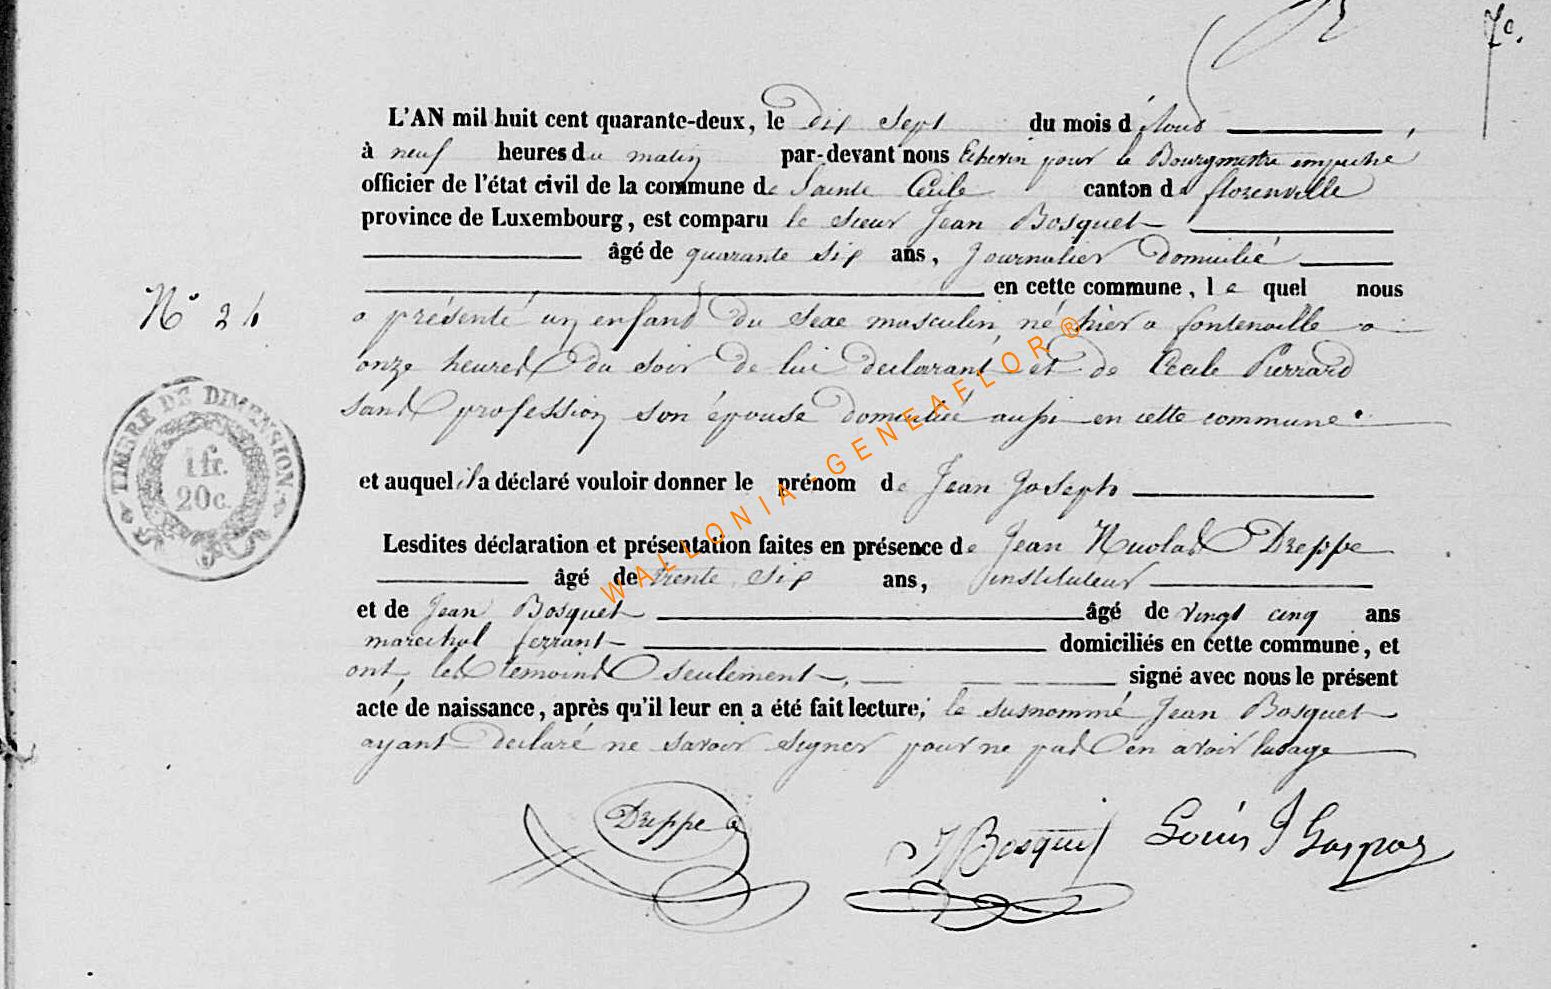 7e.
L'AN mil huit cent quarante-deux, le dix sept du mois d'Aout
à neuf heures du matin par-devant nous Echevin pour le Bourgmestre empeché
officier de l'état civil de la commune de Sainte Cecile canton de florenville
province de Luxembourg, est comparu le sieur Jean Bosquet
âgé de quarante six ans, Journalier domicilié
en cette commune, le quel nous
N° 24
a présenté un enfant du sexe masculin, né hier a fontenoille a
onze heures du soir de lui declarant et de Cécile Pierrard
sans profession son épouse domiciliée aussi en cette commune.
TIMBRE DE DIMENSION.
1 fr.
20c.
et auquel il a déclaré vouloir donner le prénom de Jean Joseph
Lesdites déclaration et présentation faites en présence de Jean Nicolas Dreppe
âgé de trente six ans, instituteur
et de Jean Bosquet âgé de vingt cinq ans
marechal ferrant domiciliés en cette commune, et
ont, les temoins seulement, signé avec nous le présent
acte de naissance, après qu'il leur en a été fait lecture, le susnommé Jean Bosquet
ayant declaré ne savoir signer pour ne pas en avoir lusage
Dreppe
J Bosquet
Louis J Gaspar
WALLONIA-GENEAFLOR®